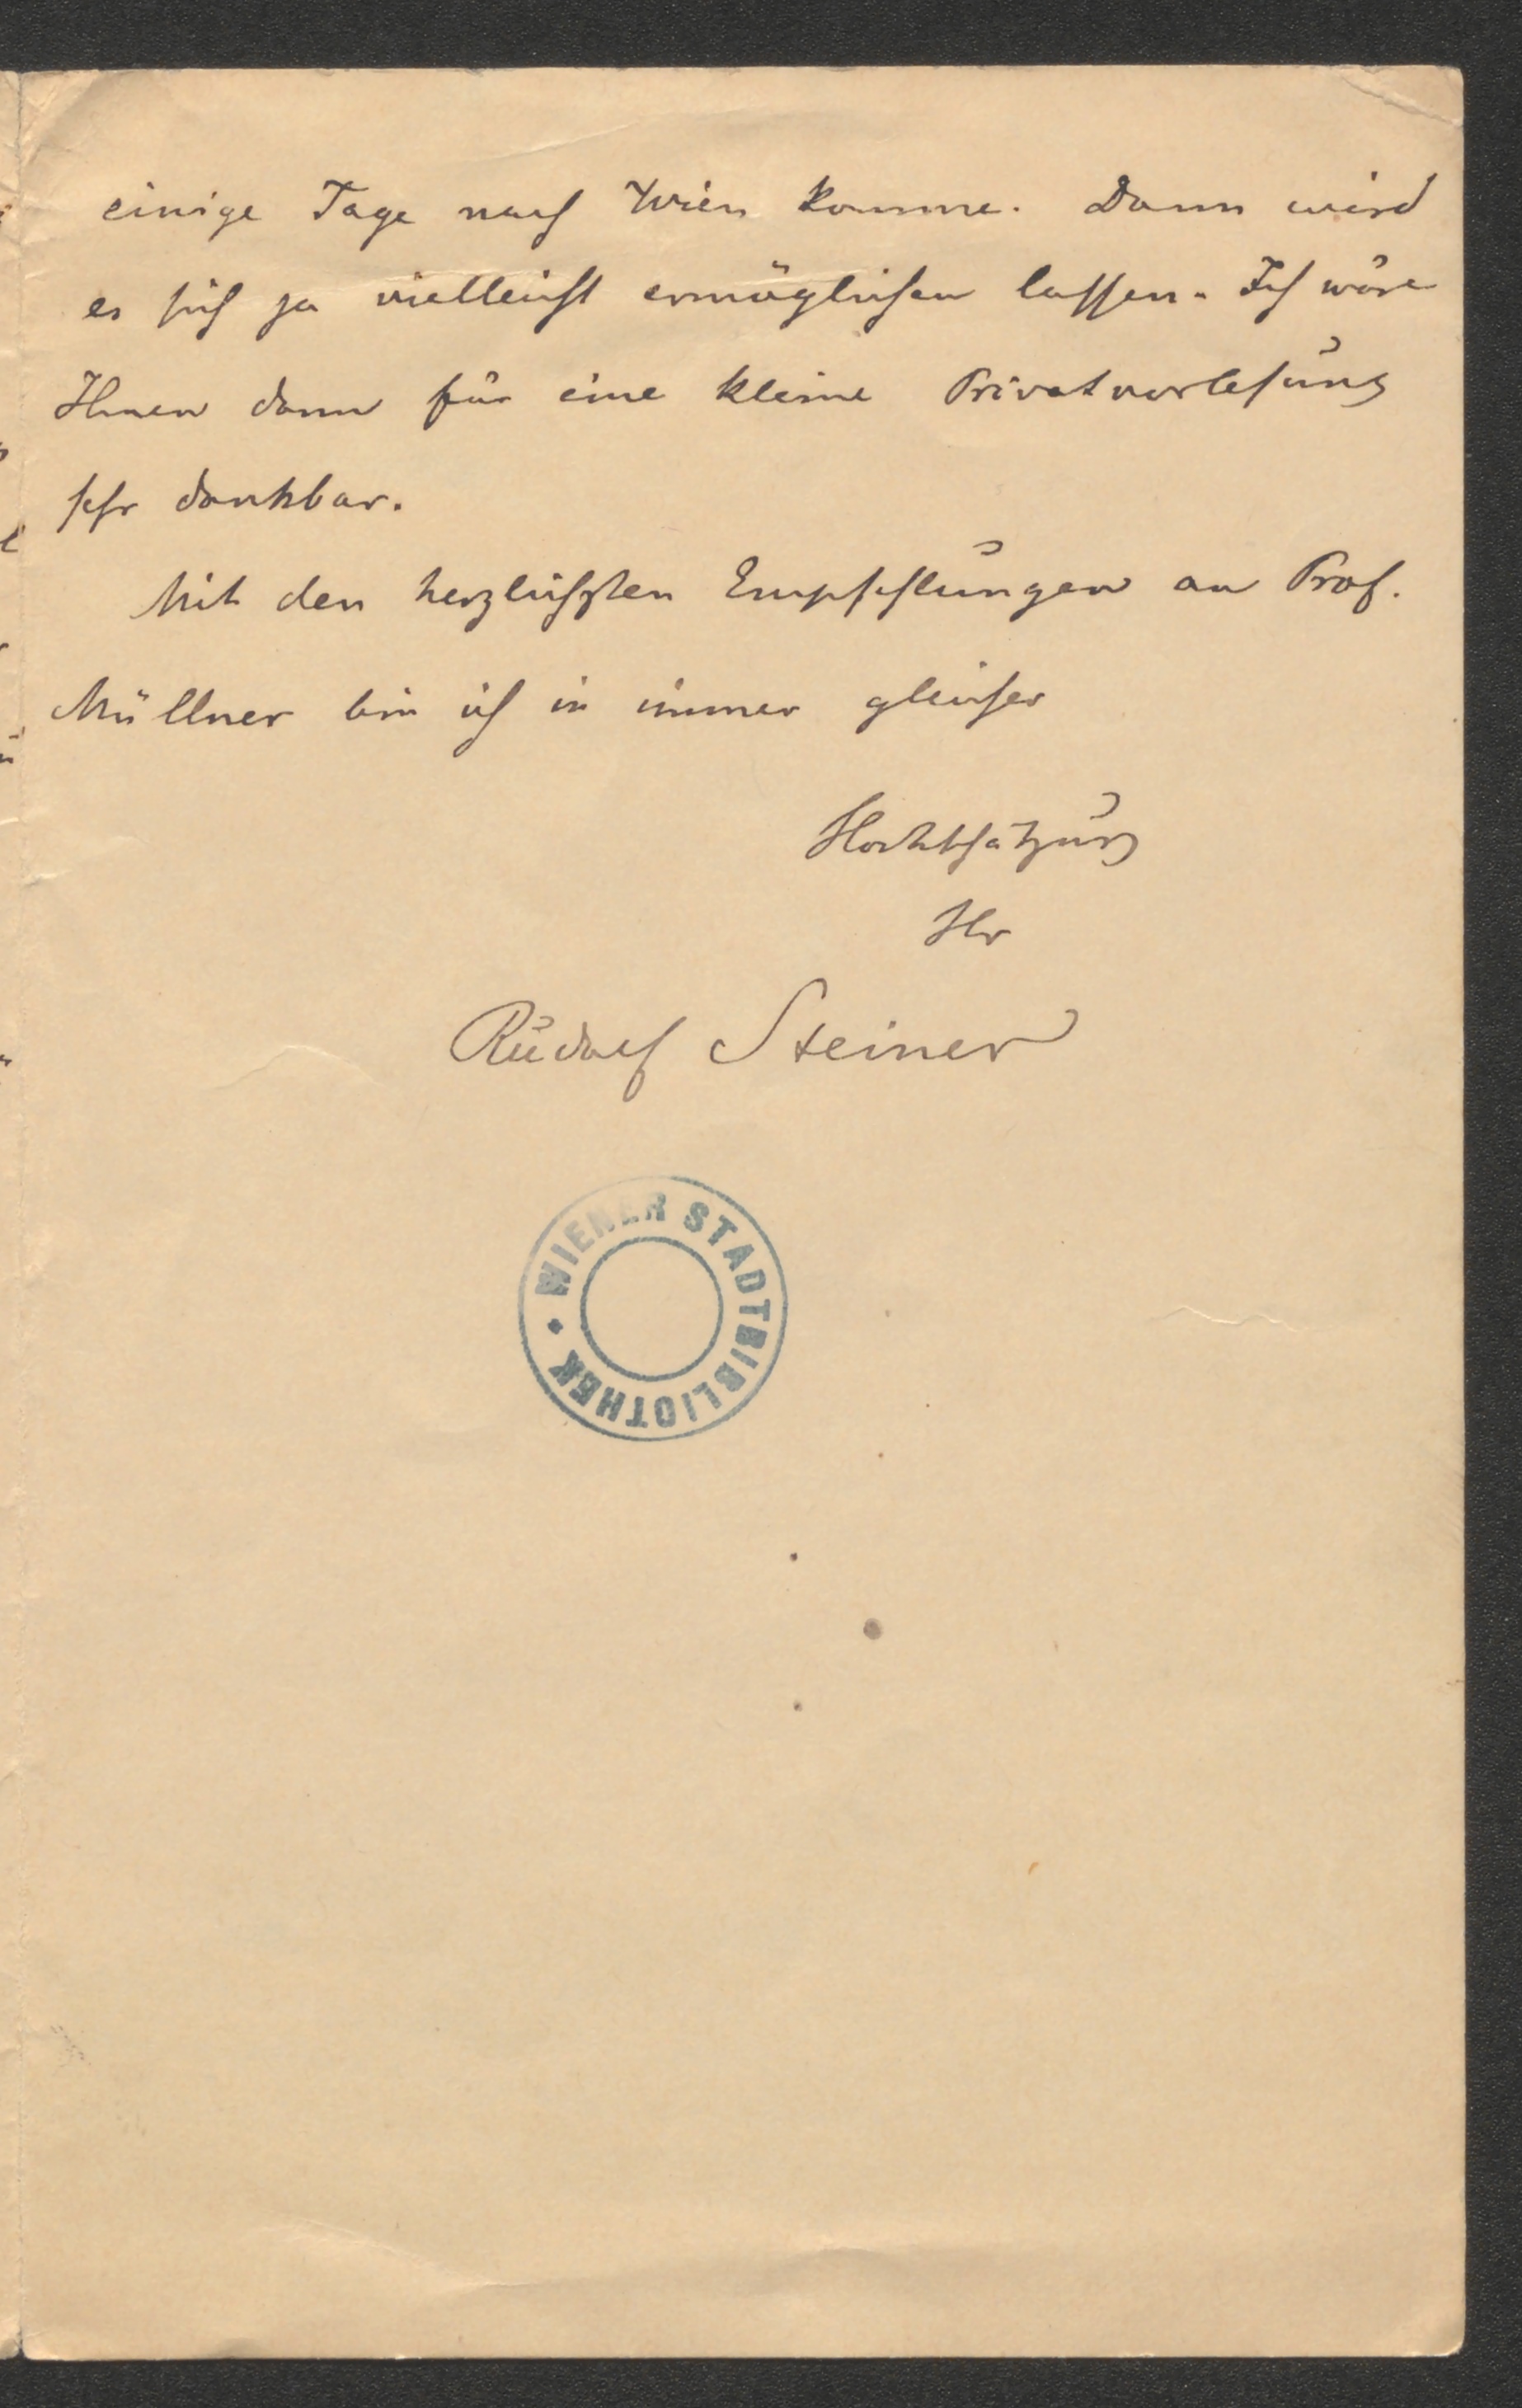 einige Tage nach Wien komme. Dann wird
es sich ja vielleicht ermöglichen lassen. Ich wäre
Ihnen dann für eine kleine Privatvorlesung
sehr dankbar.
Mit den herzlichsten Empfehlungen an Prof.
Müllner bin ich in immer gleicher
Hochschätzung
Ihr
Rudolf Steiner
WIENER STADTBIBLIOTHEK